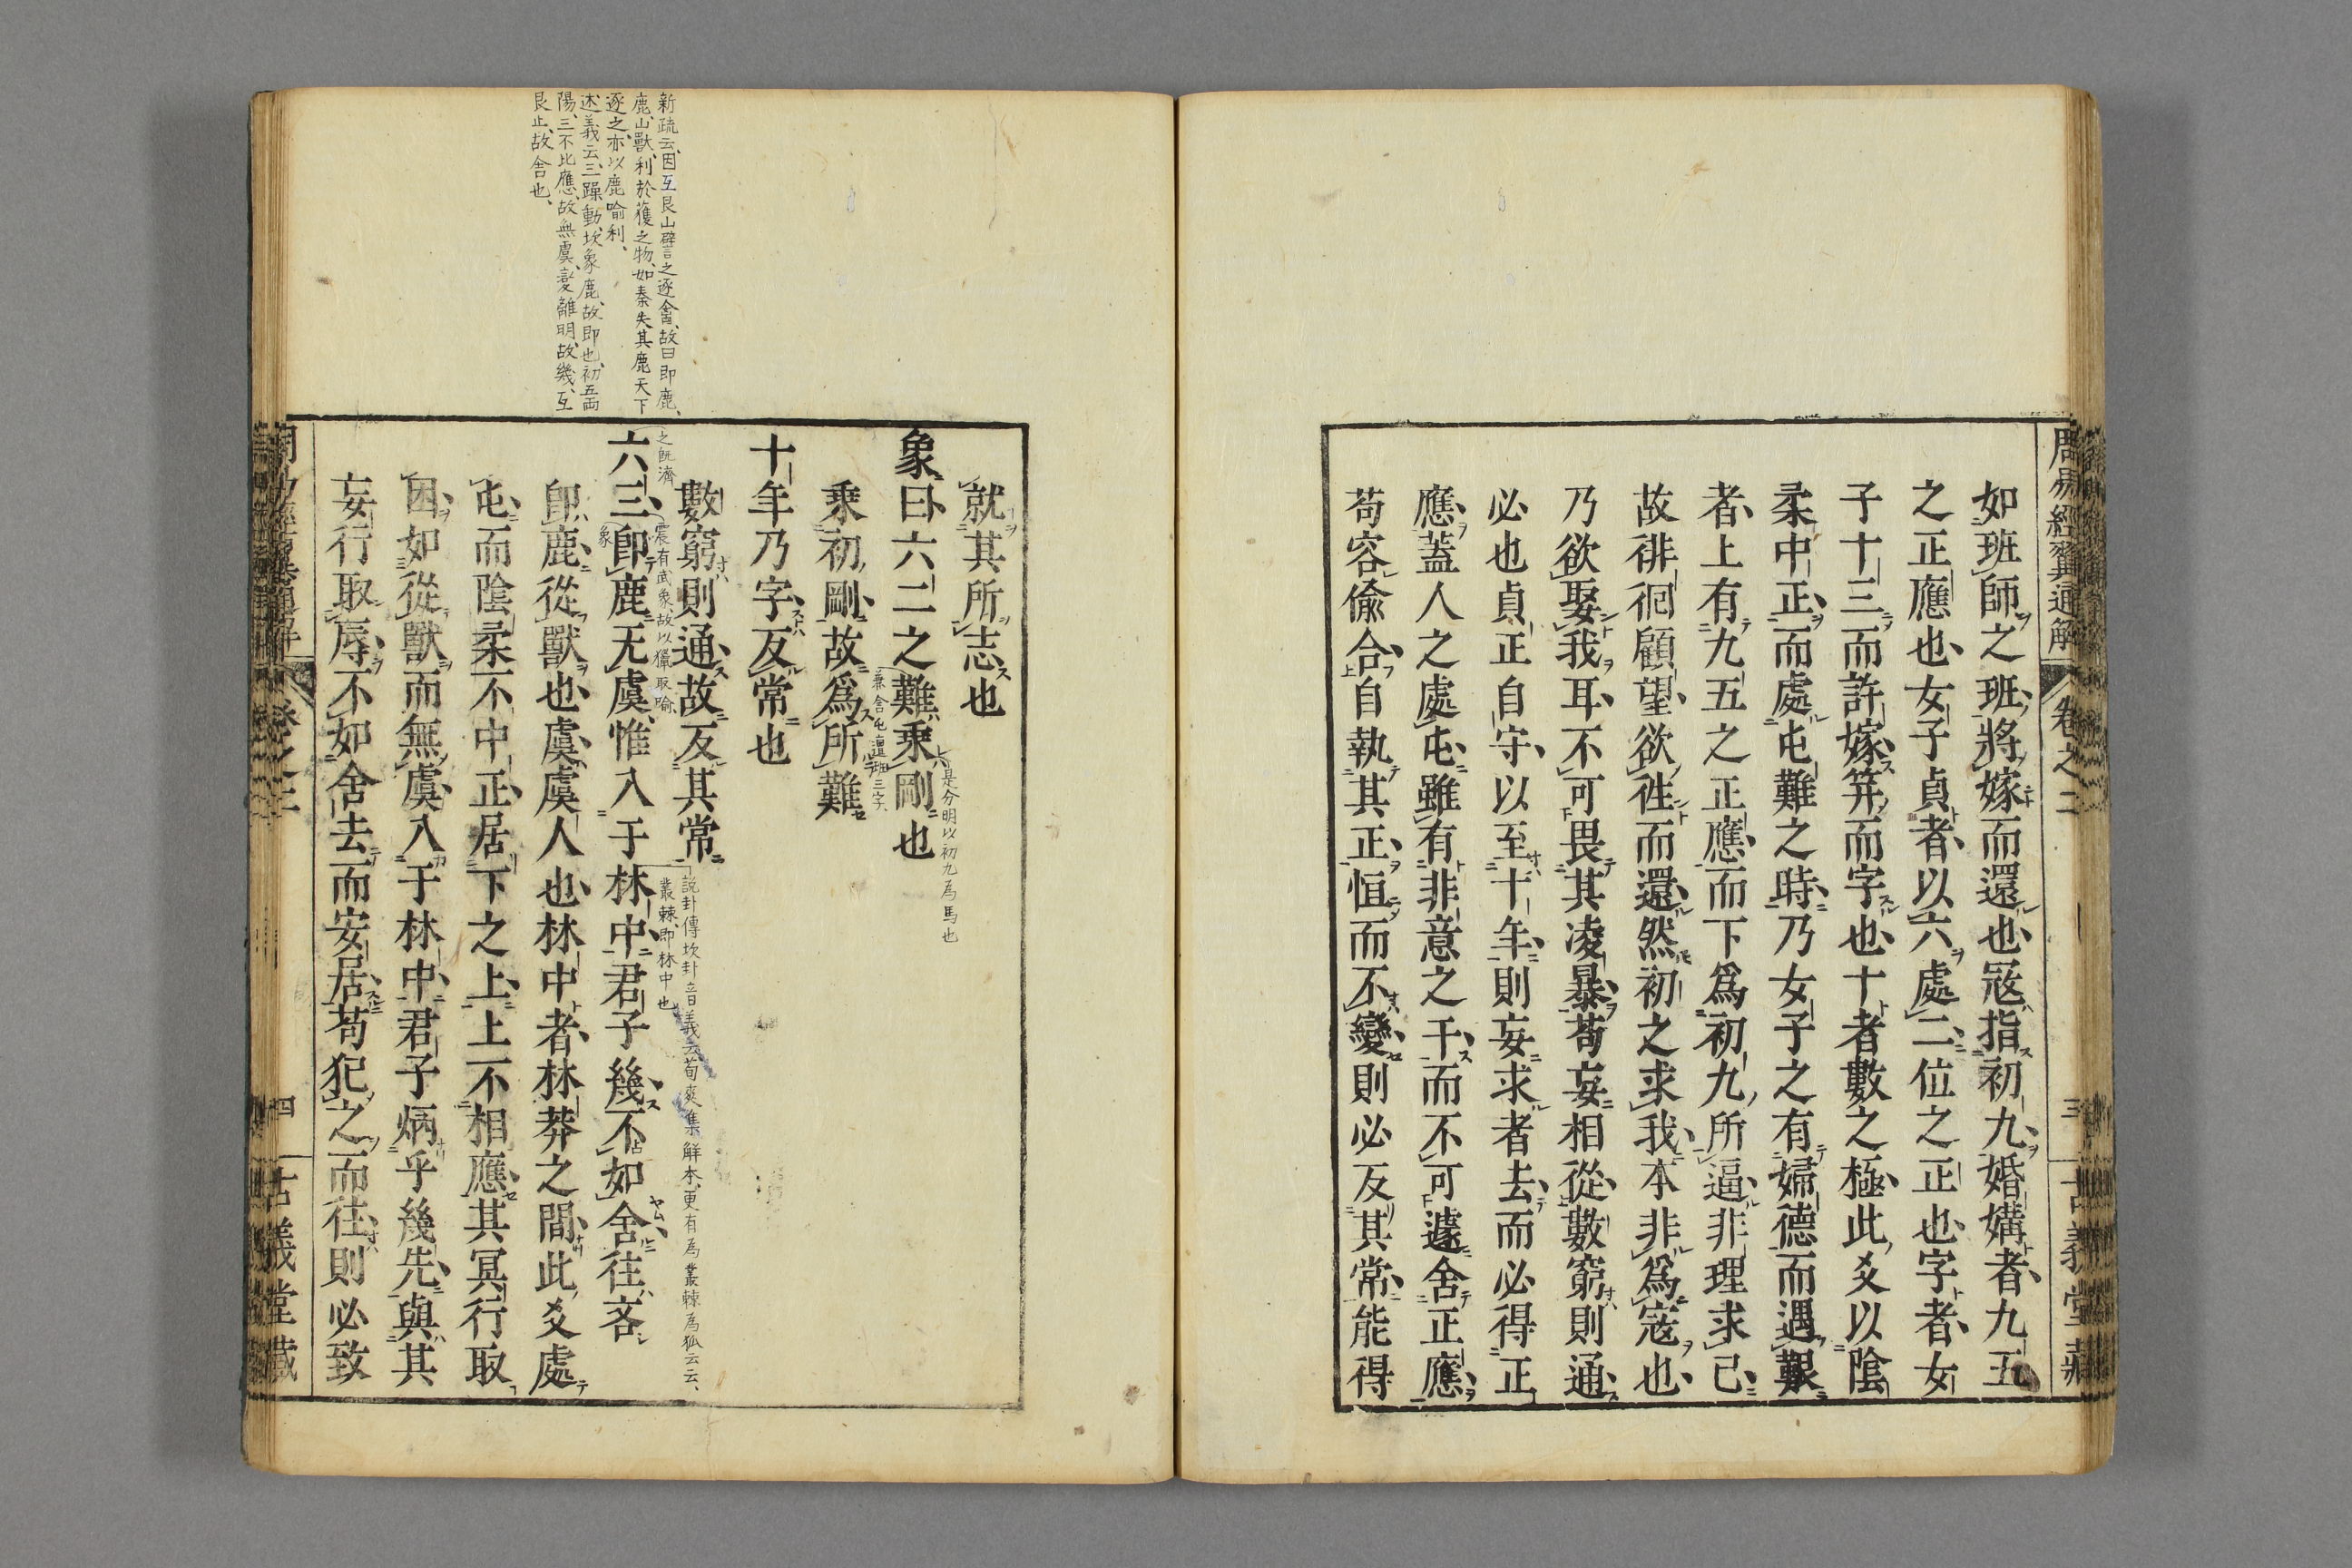 周易經翼通解 卷之二 三 古義堂藏
如班師之班將嫁而還也冦指初九婚媾者九五
之正應也女子貞者以六處二位之正也字者女
子十三而許嫁笄而字也十者數之極此爻以陰
柔中正而處屯難之時乃女子之有婦德而遇艱
者上有九五之正應而下爲初九所逼非理求己
故徘徊顧望欲徃而還然初之求我本非爲寇也
乃欲娶我耳不可畏其凌暴苟妄相從數窮則通
必也貞正自守以至十年則妄求者去而必得正
應蓋人之處屯雖有非意之干而不可遽舍正應
苟容偸合自執其正恒而不變則必反其常能得
就其所志也
象曰六二之難乘剛也
是分明以初九為馬也
乘初剛故爲所難
兼舍屯邅班三字
十年乃字反常也
數窮則通故反其常
說卦傳坎卦音義云荀爽集解本更有為叢棘為狐云云
叢棘即林中也
之既濟
震有武象故以獵取喻
六三卽鹿无虞惟入于林中君子幾不如舍往吝
象
卽鹿從獸也虞虞人也林中者林莽之間此爻處
屯而陰柔不中正居下之上上不相應其冥行取
困如從獸而無虞入于林中君子炳乎幾先與其
妄行取辱不如舍去而安居苟犯之而往則必致
四 古義堂藏
新疏云因互艮山譬言之逐禽故曰即鹿
鹿山獸利於獲之物如秦失其鹿天下
逐之亦以鹿喻利
述義云三躁動坎象鹿故即也初五両
陽三不比應故無虞変離明故幾互
艮止故舍也